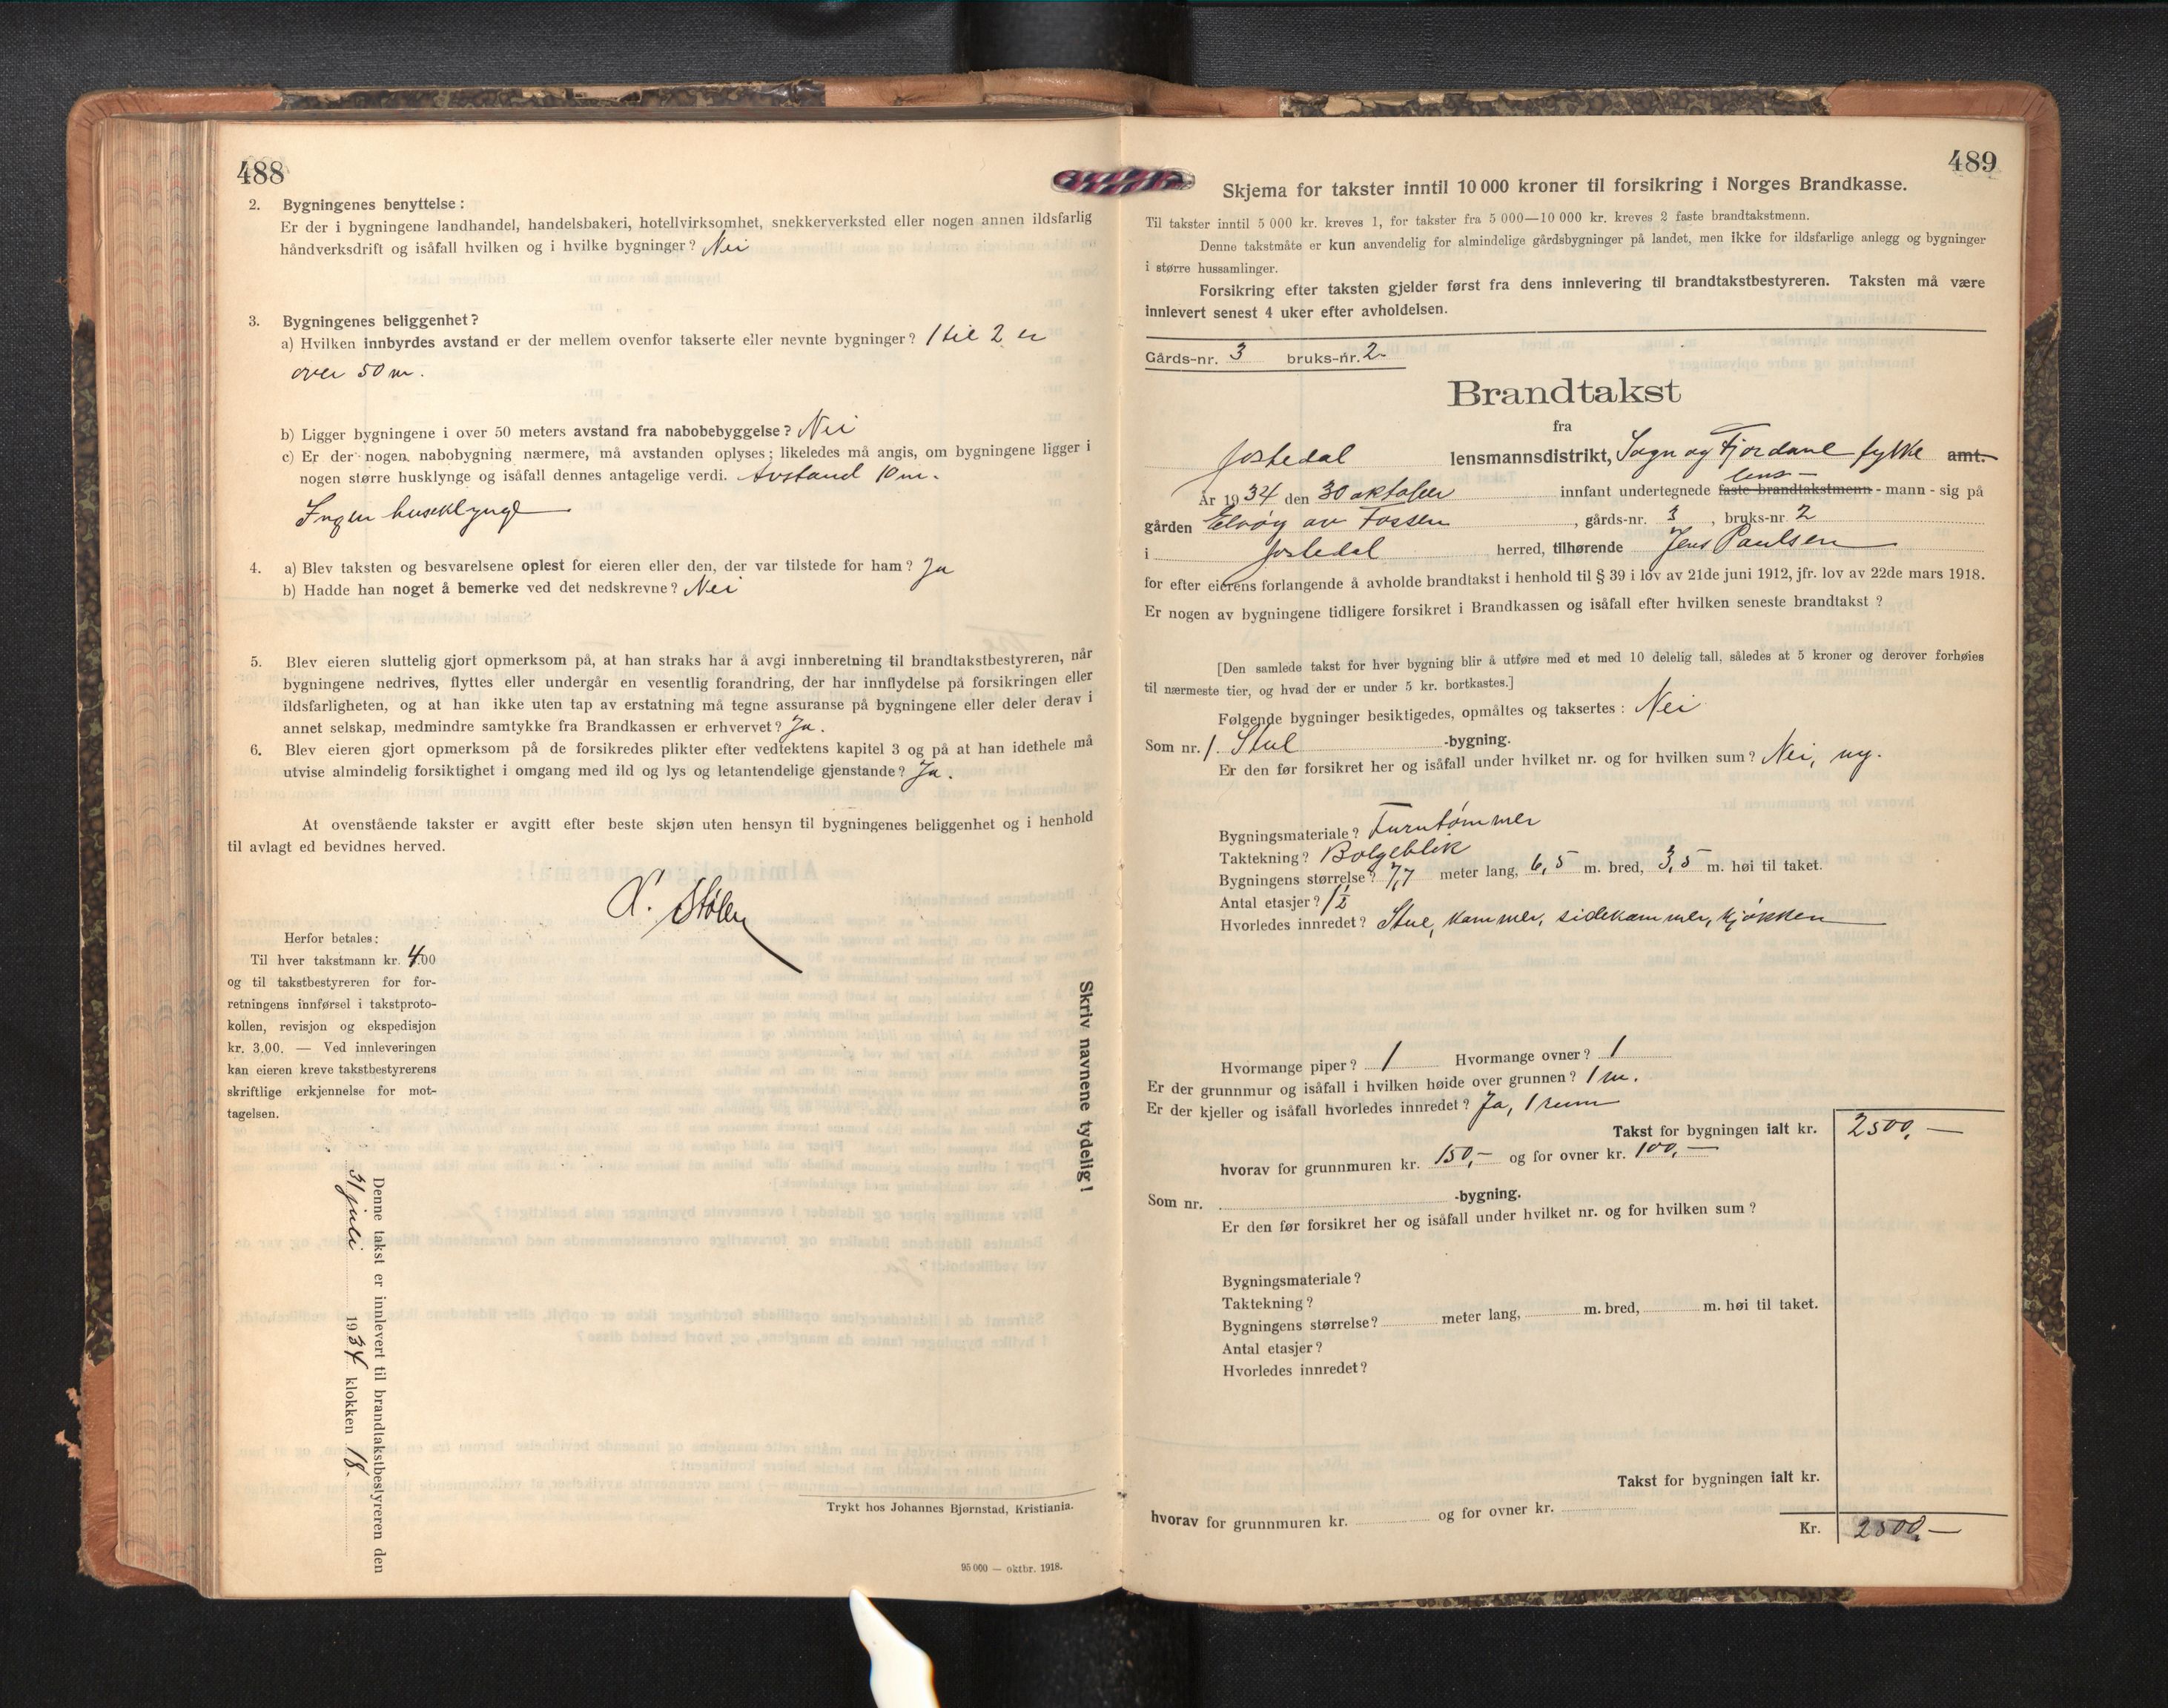 488
2. Bygningenes benyttelse:
Er der i bygningene landhandel, handelsbakeri, hotellvirksomhet, snekkerverksted eller nogen annen ildsfarlig
håndverksdrift og isåfall hvilken og i hvilke bygninger? Nei
3. Bygningenes beliggenhet?
a) Hvilken innbyrdes avstand er der mellem ovenfor takserte eller nevnte bygninger? 1 til 2 er
over 50 m.
b) Ligger bygningene i over 50 meters avstand fra nabobebyggelse? Nei
c) Er der nogen nabobygning nærmere, må avstanden oplyses; likeledes må angis, om bygningene ligger i
nogen større husklynge og isåfall dennes antagelige verdi. Avstand 10 m.
Ingen huseklynge
4. a) Blev taksten og besvarelsene oplest for eieren eller den, der var tilstede for ham? Ja
b) Hadde han noget å bemerke ved det nedskrevne? Nei
5. Blev eieren sluttelig gjort opmerksom på, at han straks har å avgi innberetning til brandtakstbestyreren, når
bygningene nedrives, flyttes eller undergår en vesentlig forandring, der har innflydelse på forsikringen eller
ildsfarligheten, og at han ikke uten tap av erstatning må tegne assuranse på bygningene eller deler derav i
annet selskap, medmindre samtykke fra Brandkassen er erhvervet? Ja.
6. Blev eieren gjort opmerksom på de forsikredes plikter efter vedtektens kapitel 3 og på at han idethele må
utvise almindelig forsiktighet i omgang med ild og lys og letantendelige gjenstande? Ja.
At ovenstående takster er avgitt efter beste skjøn uten hensyn til bygningenes beliggenhet og i henhold
til avlagt ed bevidnes herved.
Stølen
Herfor betales:
Til hver takstmann kr. 4.00
og til takstbestyreren for for-
retningens innførsel i takstproto-
kollen, revisjon og ekspedisjon
kr. 3.00. — Ved innleveringen
kan eieren kreve takstbestyrerens
skriftlige erkjennelse for mot-
tagelsen.
Skriv navnene tydelig!
Denne takst er innlevert til brandtakstbestyreren den
31 juli 1934 klokken 18.
Trykt hos Johannes Bjørnstad, Kristiania.
95 000 — oktbr. 1918.
489
Skjema for takster inntil 10 000 kroner til forsikring i Norges Brandkasse.
Til takster inntil 5 000 kr. kreves 1, for takster fra 5 000—10 000 kr. kreves 2 faste brandtakstmenn.
Denne takstmåte er kun anvendelig for almindelige gårdsbygninger på landet, men ikke for ildsfarlige anlegg og bygninger
i større hussamlinger.
Forsikring efter taksten gjelder først fra dens innlevering til brandtakstbestyreren. Taksten må være
innlevert senest 4 uker efter avholdelsen.
Gårds-nr. 3 bruks-nr. 2
Brandtakst
fra
Jostedal lensmannsdistrikt, Sogn og Fjordane fylke amt.
lens-
År 1934 den 30 oktober innfant undertegnede faste brandtakstmenn - mann - sig på
gården Elvøy av Fossen, gårds-nr. 3, bruks-nr 2
i Jostedal herred, tilhørende Jens Paulsen
for efter eierens forlangende å avholde brandtakst i henhold til § 39 i lov av 21de juni 1912, jfr. lov av 22de mars 1918.
Er nogen av bygningene tidligere forsikret i Brandkassen og isåfall efter hvilken seneste brandtakst?
[Den samlede takst for hver bygning blir å utføre med et med 10 delelig tall, således at 5 kroner og derover forhøies
til nærmeste tier, og hvad der er under 5 kr. bortkastes.]
Følgende bygninger besiktigedes, opmåltes og taksertes: Nei
Som nr. 1. Stul -bygning.
Er den før forsikret her og isåfall under hvilket nr. og for hvilken sum? Nei, ny.
Bygningsmateriale? Furutømmer
Taktekning? Bølgeblik
Bygningens størrelse? 7,7 meter lang, 6,5 m. bred, 3,5 m. høi til taket.
Antal etasjer? 1½
Hvorledes innredet? Stue, kammer, sidekammer, kjøkken
Hvormange piper? 1 Hvormange ovner? 1
Er der grunnmur og isåfall i hvilken høide over grunnen? 1 m.
Er der kjeller og isåfall hvorledes innredet? Ja, 1 rum
Takst for bygningen ialt kr. 2500,—
hvorav for grunnmuren kr. 150,— og for ovner kr. 100,—
Som nr. -bygning.
Er den før forsikret her og isåfall under hvilket nr. og for hvilken sum?
Bygningsmateriale?
Taktekning?
Bygningens størrelse? meter lang, m. bred, m. høi til taket.
Antal etasjer?
Hvorledes innredet?
Takst for bygningen ialt kr.
hvorav for grunnmuren kr. og for ovner kr.
Kr. 2500,—